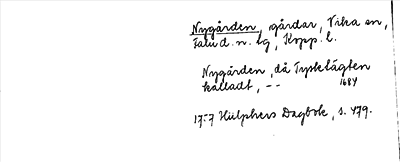 Nygården, gårdar, Vika sn,
Falu d. n. lg, Kopp. l.
Nygården, då Tysktägten
kalladt, -- 1684
1757 Hülphers Dagbok, s. 479.